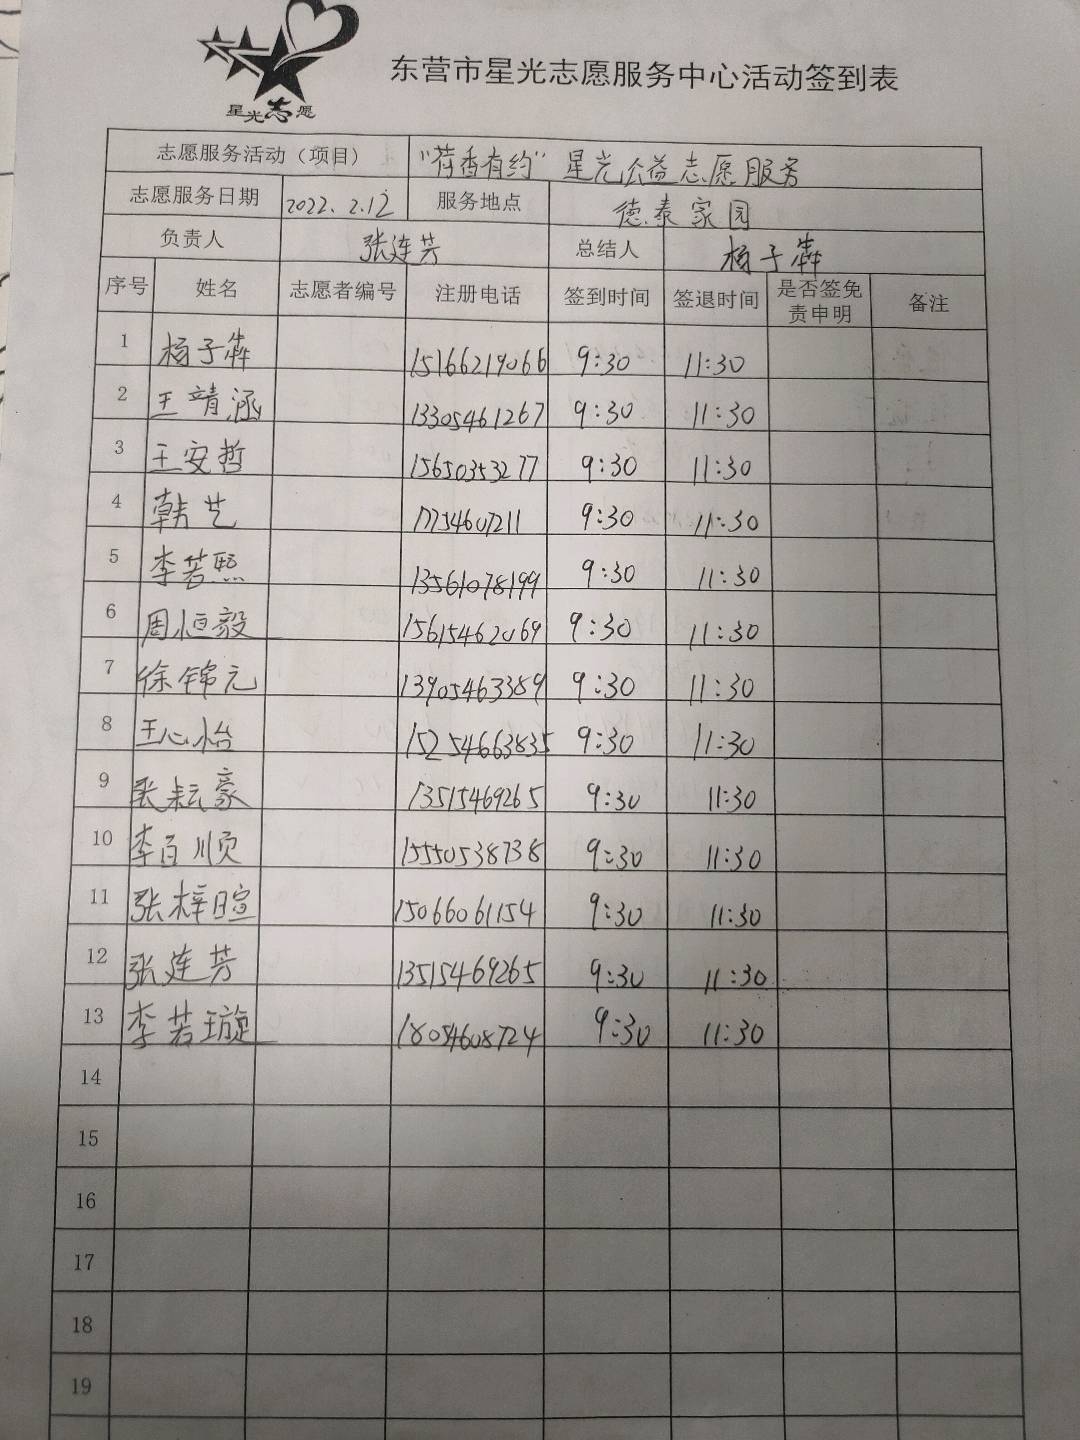 星光志愿
东营市星光志愿服务中心活动签到表
志愿服务活动（项目） “荷香有约”星光公益志愿服务
志愿服务日期 2022.2.12 服务地点 德泰家园
负责人 张连芳 总结人 杨子犇
序号 姓名 志愿者编号 注册电话 签到时间 签退时间 是否签免责申明 备注
1 杨子犇 15166219066 9:30 11:30
2 王靖涵 13305461267 9:30 11:30
3 王安哲 15650353277 9:30 11:30
4 韩艺 17754607211 9:30 11:30
5 李若熙 13561078199 9:30 11:30
6 周恒毅 15615462069 9:30 11:30
7 徐锦元 13905463389 9:30 11:30
8 王心怡 15254663835 9:30 11:30
9 张耘豪 13515469265 9:30 11:30
10 李百顺 15550538738 9:30 11:30
11 张梓暄 15066061154 9:30 11:30
12 张连芳 13515469265 9:30 11:30
13 李若璇 18054608724 9:30 11:30
14
15
16
17
18
19